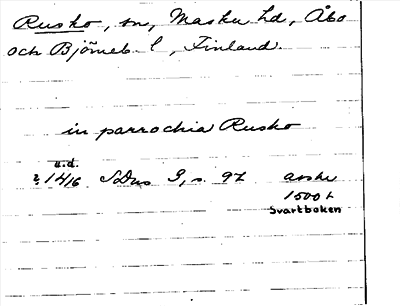 Rusko, sn, Masku hd, Åbo
och Björneb. l, Finland.
in parrochia Rusko
u.d.
? 1416 SDns 3, s. 97 avskr
1500 t
Svartboken